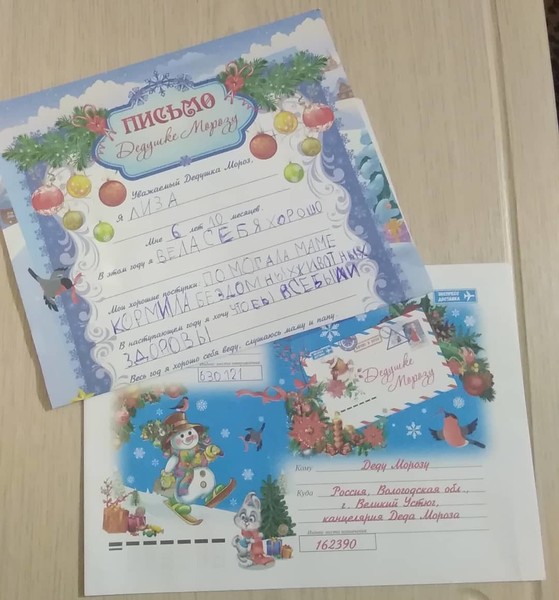 ПИСЬМО
Дедушке Морозу
Уважаемый Дедушка Мороз,
Я ЛИЗА
Мне 6 лет 10 месяцев.
В этом году я ВЕЛА СЕБЯ ХОРОШО
Мои хорошие поступки: ПОМОГАЛА МАМЕ
КОРМИЛА БЕЗДОМНЫХ ЖИВОТНЫХ
В наступающем году я хочу ЧТОБЫ ВСЕ БЫЛИ
ЗДОРОВЫ
Весь год я хорошо себя веду, слушаюсь маму и папу.
Индекс места отправления
630121
ЭКСПРЕСС
ДОСТАВКА
Дедушке
Морозу
Кому Деду Морозу
Куда Россия, Вологодская обл.,
г. Великий Устюг,
канцелярия Деда Мороза
Индекс места назначения
162390